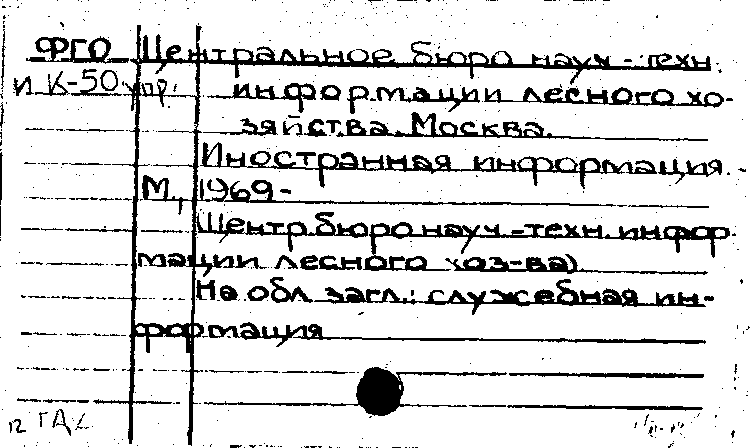 ФГО Центральное бюро науч-техн.
и К-50 упр. информации лесного хо-
зяйства. Москва.
Иностранная информация. -
М., 1969-
(Центр.бюро науч-техн. инфор
мации лесного хоз-ва)
На обл загл.: служебная ин-
формация
12